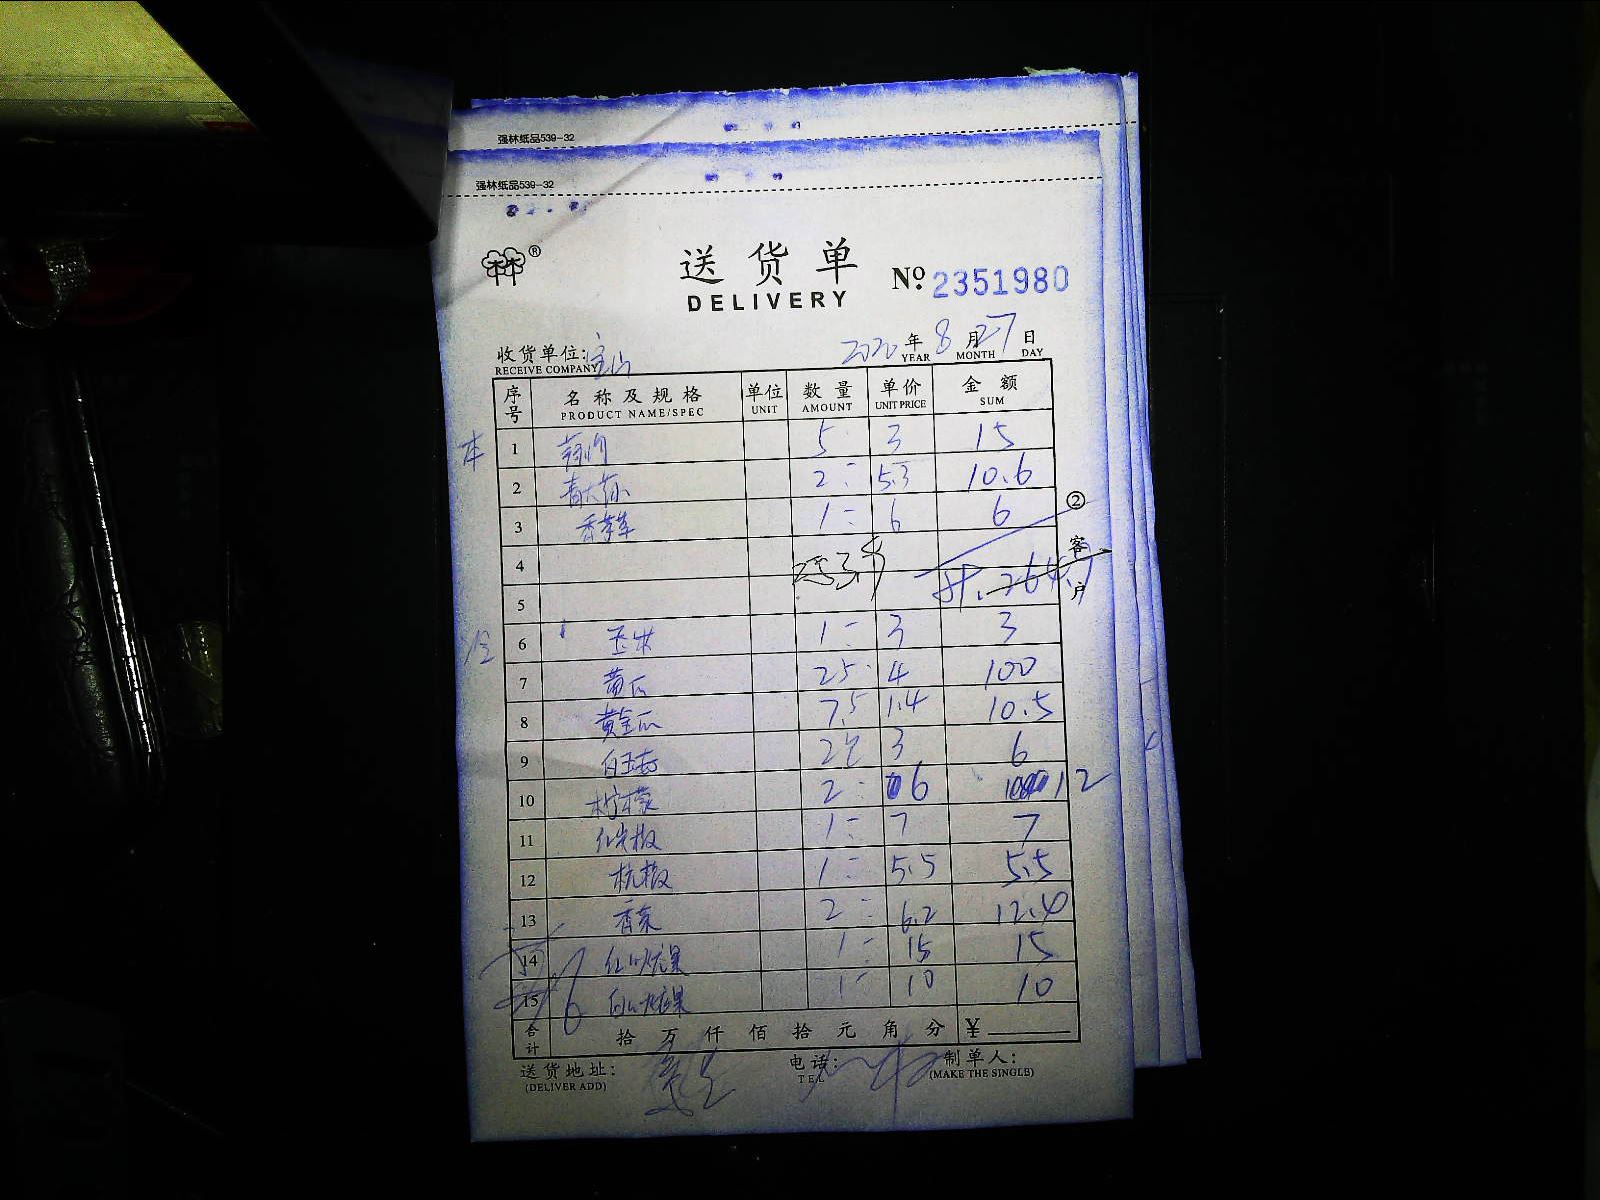 强林纸品539-32
强林纸品539-32
®
送货单 No. 2351980
DELIVERY
收货单位:宝山 2020年8月27日
RECEIVE COMPANY YEAR MONTH DAY
序号 名称及规格 单位 数量 单价 金额
PRODUCT NAME/SPEC UNIT AMOUNT UNIT PRICE SUM
本 1 5 3 15
2 2 5.3 10.6
3 1 6 6
②客户
4
5
6 玉米 1 3 3
7 黄瓜 25 4 100
8 黄金瓜 7.5 1.4 10.5
9 白玉菇 2 3 6
10 柠檬 2 6 12
11 红尖椒 1 7 7
12 杭椒 1 5.5 5.5
13 香菜 2 6.2 12.4
14 红火龙果 1 15 15
15 白火龙果 1 10 10
合计 拾万仟佰拾元角分 ¥
送货地址: 电话: 制单人:
(DELIVER ADD) TEL (MAKE THE SINGLE)